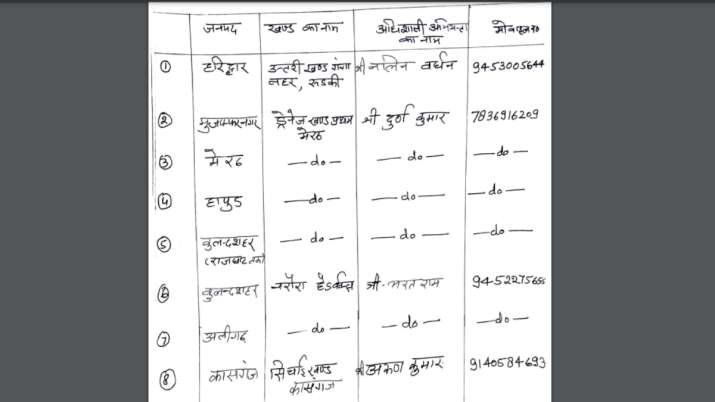 जनपद खण्ड का नाम अधिशासी अभियन्ता का नाम मोबाइल न०
① हरिद्वार उत्तरी खण्ड गंगा नहर, रुड़की श्री नलिन वर्धन 9453005644
② मुजफ्फरनगर ड्रेनेज खण्ड प्रथम मेरठ श्री दुर्ग कुमार 7836916209
③ मेरठ —do— —do— —do—
④ हापुड़ —do— —do— —do—
⑤ बुलन्दशहर (राजघाट तक) —do— —do— —do—
⑥ बुलन्दशहर नरौरा हैडवर्क्स श्री भरत राम
⑦ अलीगढ़ —do— —do— —do—
⑧ कासगंज सिचाई खण्ड कासगंज श्री अरुण कुमार 9140584693